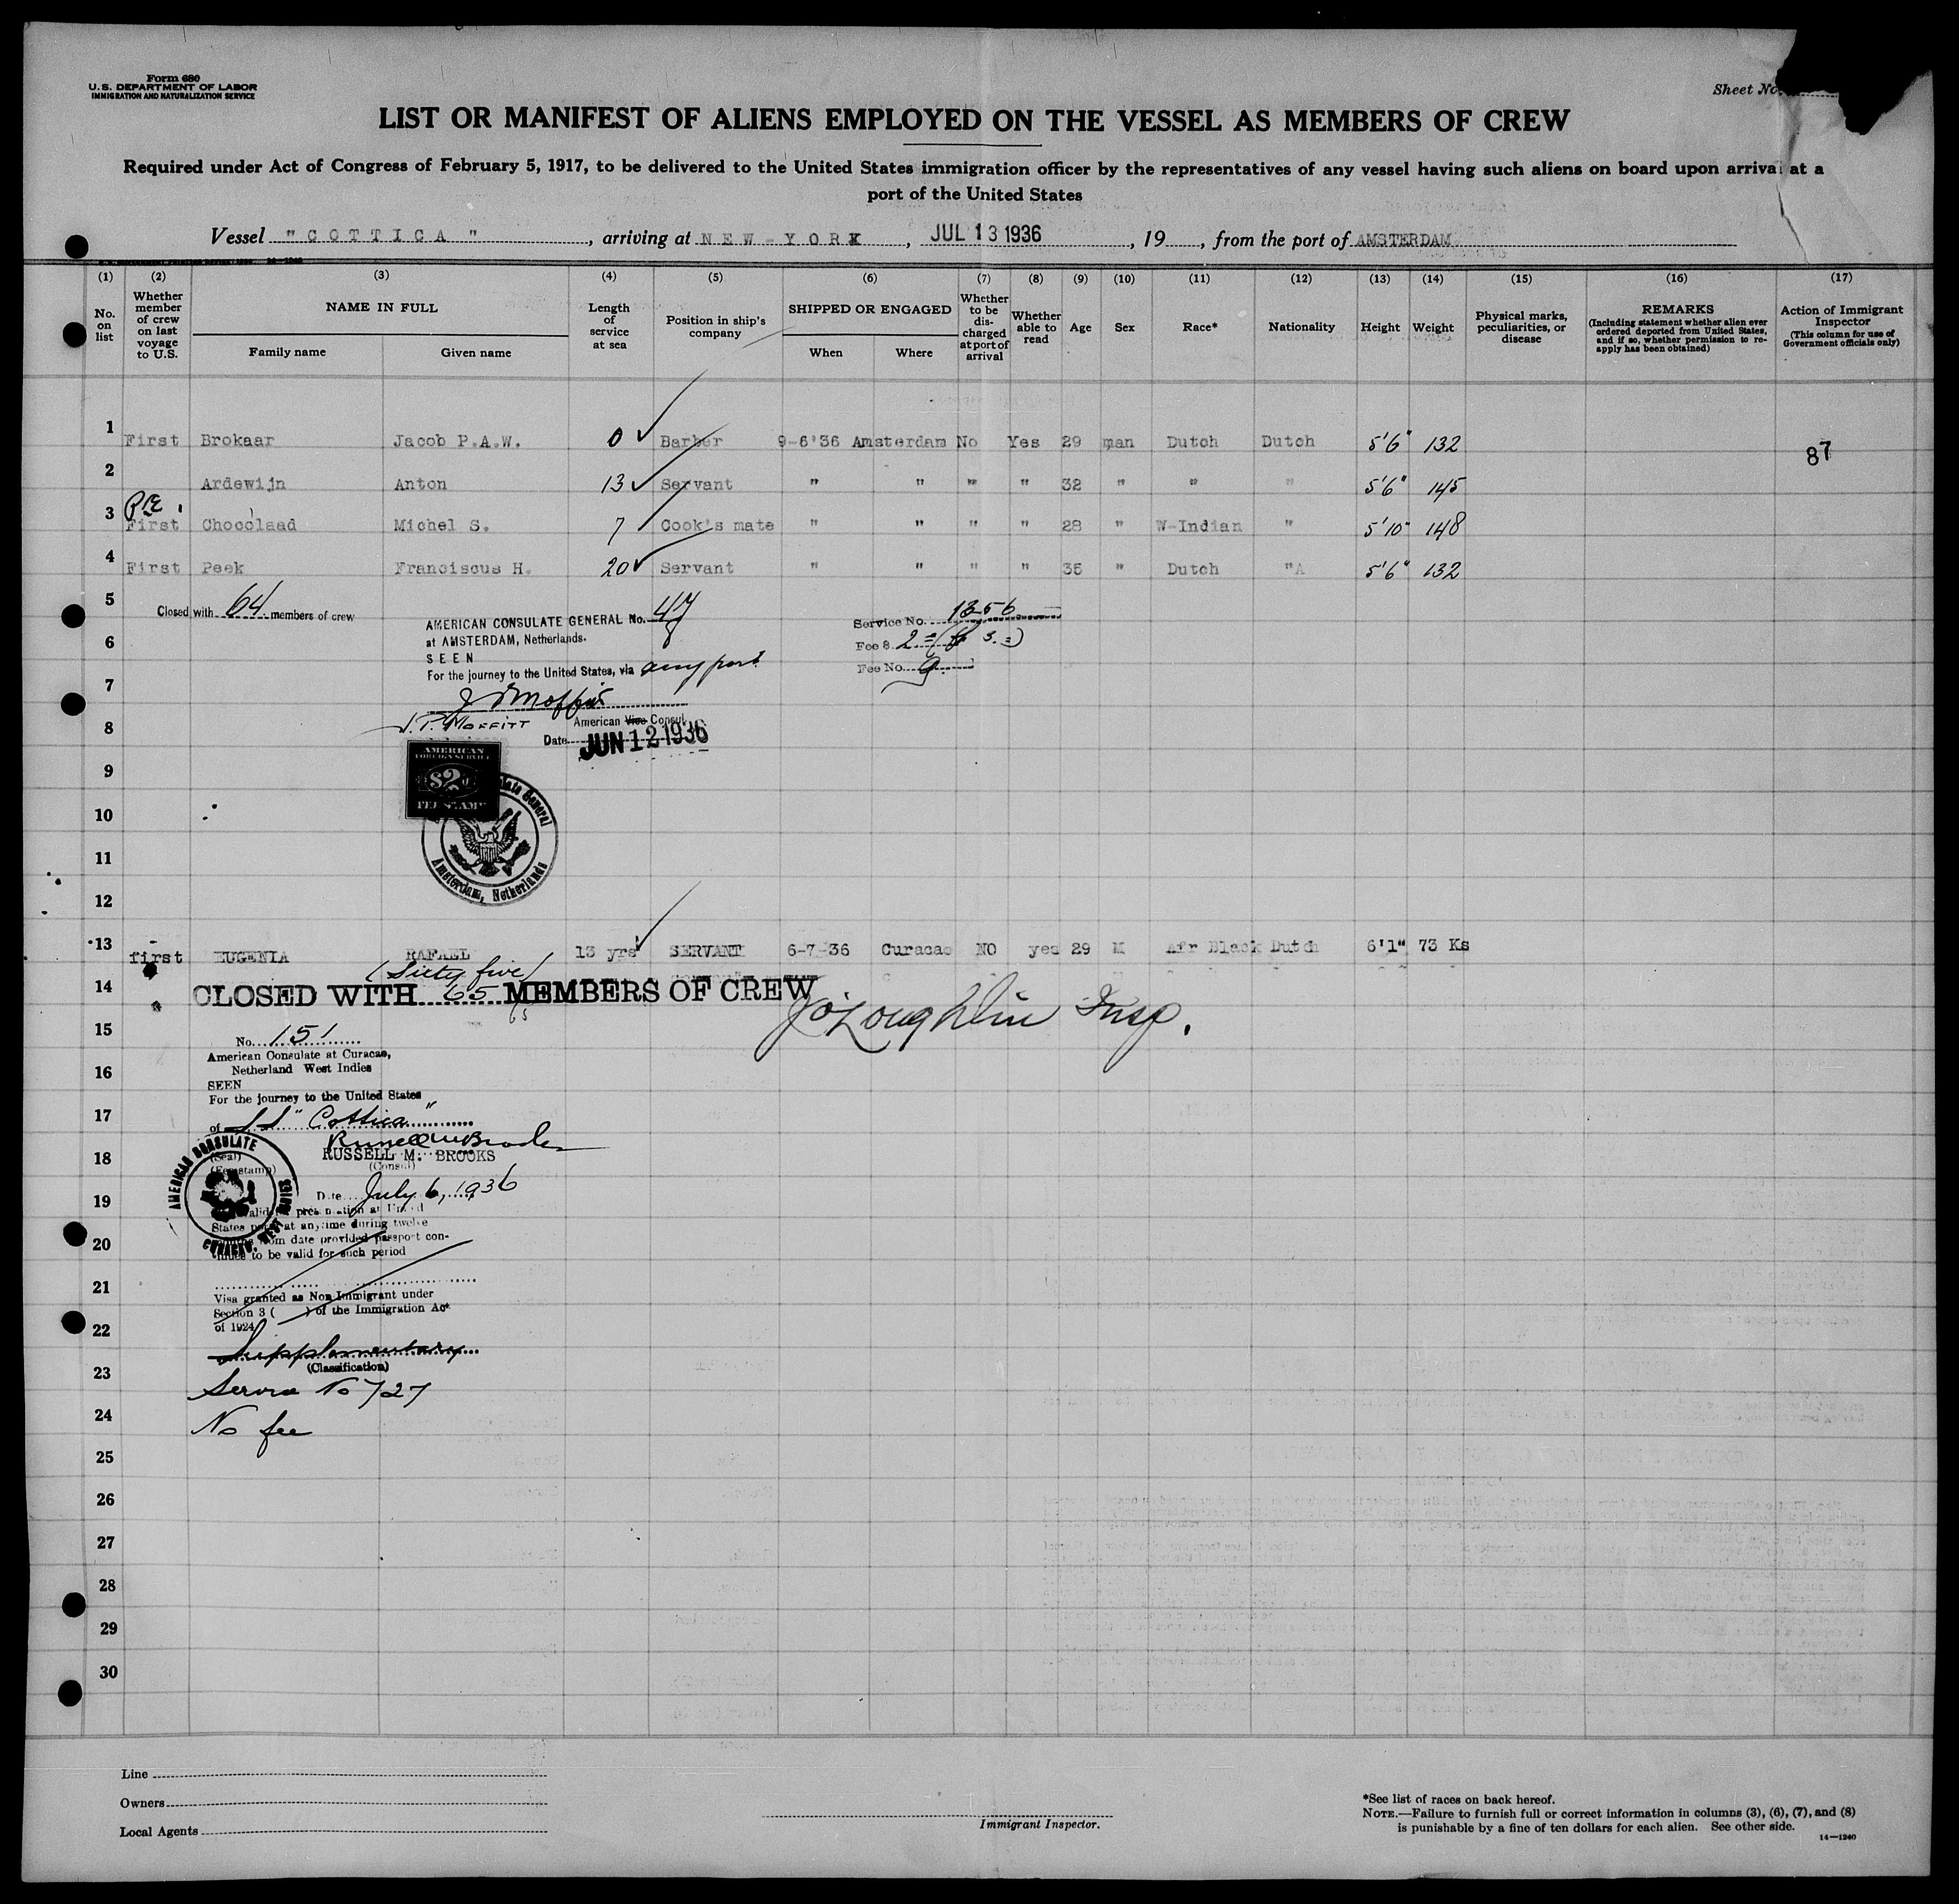 Form 680
U. S. DEPARTMENT OF LABOR
IMMIGRATION AND NATURALIZATION SERVICE
Sheet No.
LIST OR MANIFEST OF ALIENS EMPLOYED ON THE VESSEL AS MEMBERS OF CREW
Required under Act of Congress of February 5, 1917, to be delivered to the United States immigration officer by the representatives of any vessel having such aliens on board upon arrival at a
port of the United States
Vessel "COTTICA", arriving at NEW-YORK, JUL 13 1936, 19 , from the port of AMSTERDAM.
(1) (2) (3) (4) (5) (6) (7) (8) (9) (10) (11) (12) (13) (14) (15) (16) (17)
No. on list
Whether member of crew on last voyage to U.S.
NAME IN FULL
Family name
Given name
Length of service at sea
Position in ship's company
SHIPPED OR ENGAGED
When
Where
Whether to be discharged at port of arrival
Whether able to read
Age
Sex
Race*
Nationality
Height
Weight
Physical marks, peculiarities, or disease
REMARKS
(Including statement whether alien ever ordered deported from United States, and if so, whether permission to re-apply has been obtained)
Action of Immigrant Inspector
(This column for use of Government officials only)
1 First Brokaar Jacob P.A.W. 0 Barber 9-6'36 Amsterdam No Yes 29 man Dutch Dutch 5'6" 132
87
2 Ardewijn Anton 13 Servant " " " " 32 " " " 5'6" 145
3 First Chocolaad Michel S. 7 Cook's mate " " " " 28 " W-Indian " 5'10" 148
4 First Peek Franciscus H. 20 Servant " " " " 35 " Dutch "A 5'6" 132
5
Closed with 64 members of crew
AMERICAN CONSULATE GENERAL No. 47
at AMSTERDAM, Netherlands.
SEEN
For the journey to the United States, via any port
Service No. 1356
Fee $ 2
Fee No. 9
6
7
J P Moffitt
J. P. MOFFITT
American Vice Consul
8
Date JUN 12 1936
9
AMERICAN
FOREIGN SERVICE
$2
FEE STAMP
10
Consulate General
Amsterdam, Netherlands
11
12
13 first EUGENIA RAFAEL 13 yrs SERVANT 6-7-36 Curacao NO yes 29 M Afr Black Dutch 6'1" 73 Ks
(Sixty five)
14 CLOSED WITH 65 MEMBERS OF CREW
65
J O'Loughlin Insp.
15
No. 151
American Consulate at Curacao,
Netherland West Indies
16
SEEN
For the journey to the United States
17
of SS "Cottica"
Russell M Brooks
18
(Seal)
RUSSELL M. BROOKS
(Consul)
(Fee stamp)
AMERICAN CONSULATE
CURACAO, WEST INDIES
19
Date July 6, 1936
valid presentation at United
States ports at anytime during twelve
20
months from date provided passport con-
tinues to be valid for such period
21
Visa granted as Non Immigrant under
Section 3 ( ) of the Immigration Act
of 1924
22
Supplementary
(Classification)
23
Service No 727
24
No fee
25
26
27
28
29
30
Line
Owners
Local Agents
Immigrant Inspector.
*See list of races on back hereof.
NOTE.—Failure to furnish full or correct information in columns (3), (6), (7), and (8)
is punishable by a fine of ten dollars for each alien. See other side.
14—1240